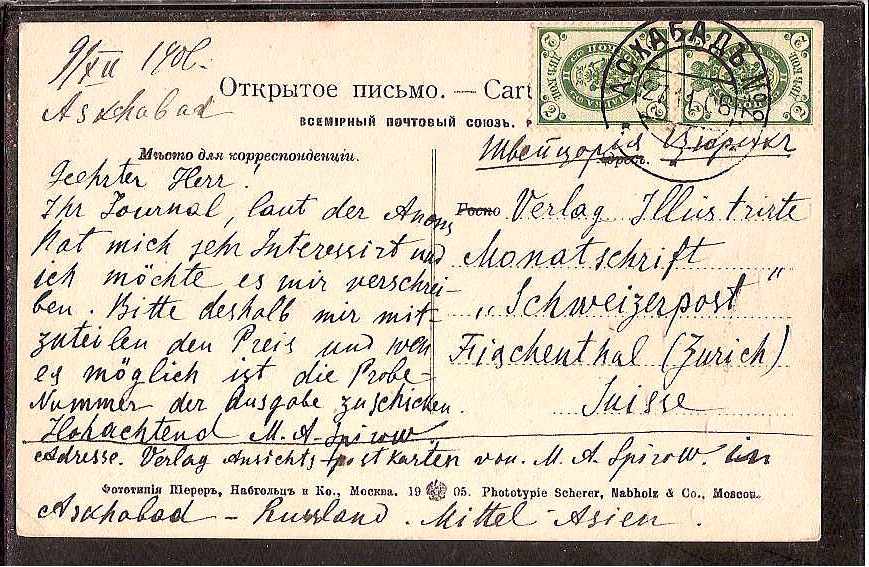 9/XII 190
Askhabad
Открытое письмо. — Cart
ВСЕМІРНЫЙ ПОЧТОВЫЙ СОЮЗЪ. Р
Мѣсто для корреспонденціи.
АСХАБАДЪ
27.11.06
Швейцарія Цюрихъ
Geehrter Herr!
Ihr Journal, laut der Anons
hat mich sehr Interessirt und
ich möchte es mir verschrei-
ben. Bitte deshalb mir mit-
zuteilen den Preis und wen
es möglich ist die Probe-
Nummer der Ausgabe zuschicken.
Hohachtend M. A. Spirow
Verlag Illustrirte
Monatschrift
„Schweizerpost"
Fischenthal (Zurich)
Suisse
Adresse. Verlag Ansichts-postkarten von. M. A. Spirow. in
Фототипія Шереръ, Набгольцъ и Ко., Москва. 19 05. Phototypie Scherer, Nabholz & Co., Moscou.
Askhabad – Russland. Mittel-Asien.